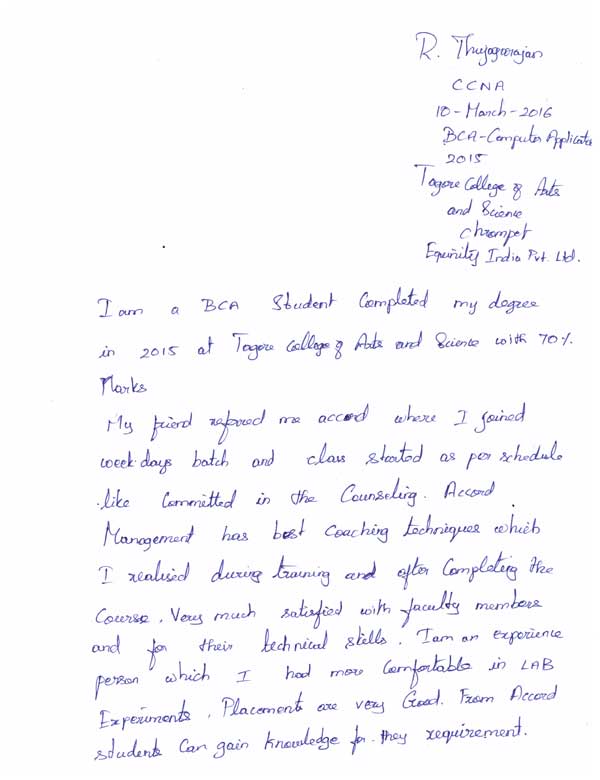 R. Thyagarajan
CCNA
10-March-2016
BCA-Computer Applicatio
2015
Tagore College of Arts
and Science
Chrompet
Equinity India Pvt. Ltd.
I am a BCA Student Completed my degree
in 2015 at Tagore College of Arts and Science with 70%
Marks
My friend refered me accord where I joined
week days batch and class started as per schedule
like Committed in the Counseling. Accord
Management has best coaching techniques which
I realised during training and after Completing the
Course. Very much satisfied with faculty members
and for their technical skills. I am an experience
person which I had more Comfortable in LAB
Experiments, Placement are very Good. From Accord
students Can gain knowledge for they requirement.